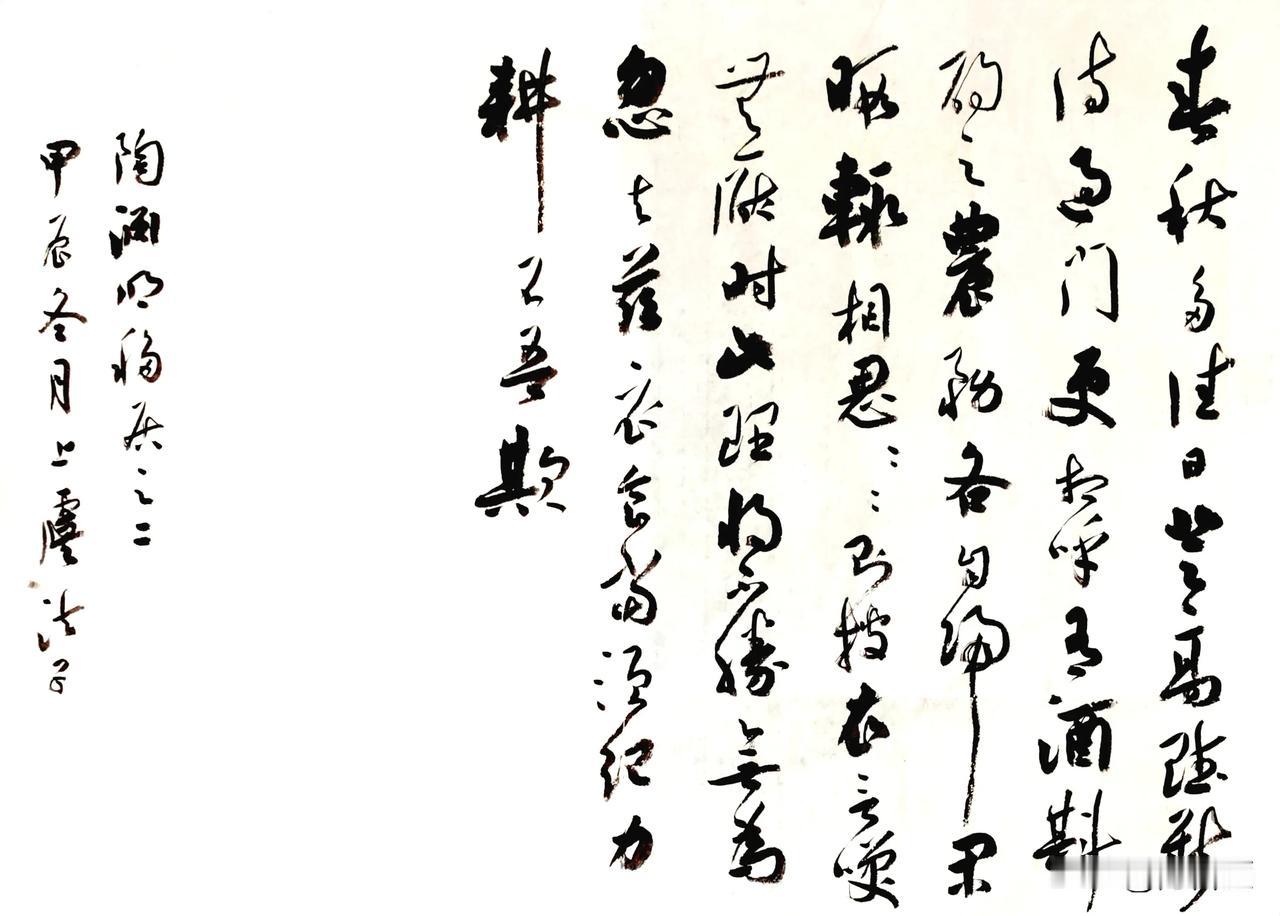 春秋多佳日登高賦新
诗過门更相呼有酒斟
酌之農務各自歸閑
暇輒相思〻〻則披衣言咲
無厭时此理將不勝無為
忽去茲衣食當須紀力
耕不吾欺
陶渊明移居之二
甲辰冬月上虞